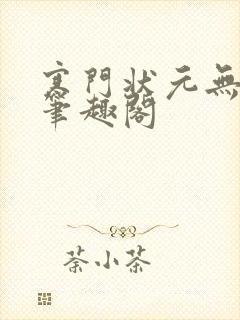 寒門狀元無
筆趣閣
荼小茶